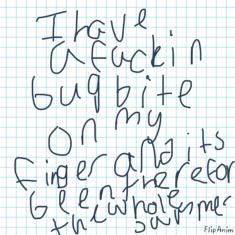 I have
a fuckin
bug bite
on my
finger and its
been there for
the whole
summer
FlipAnim